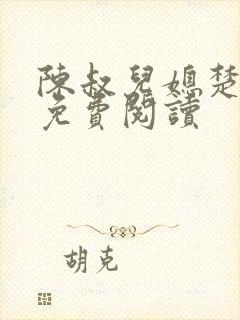 陳叔兒媳楚
免費閱讀
胡克